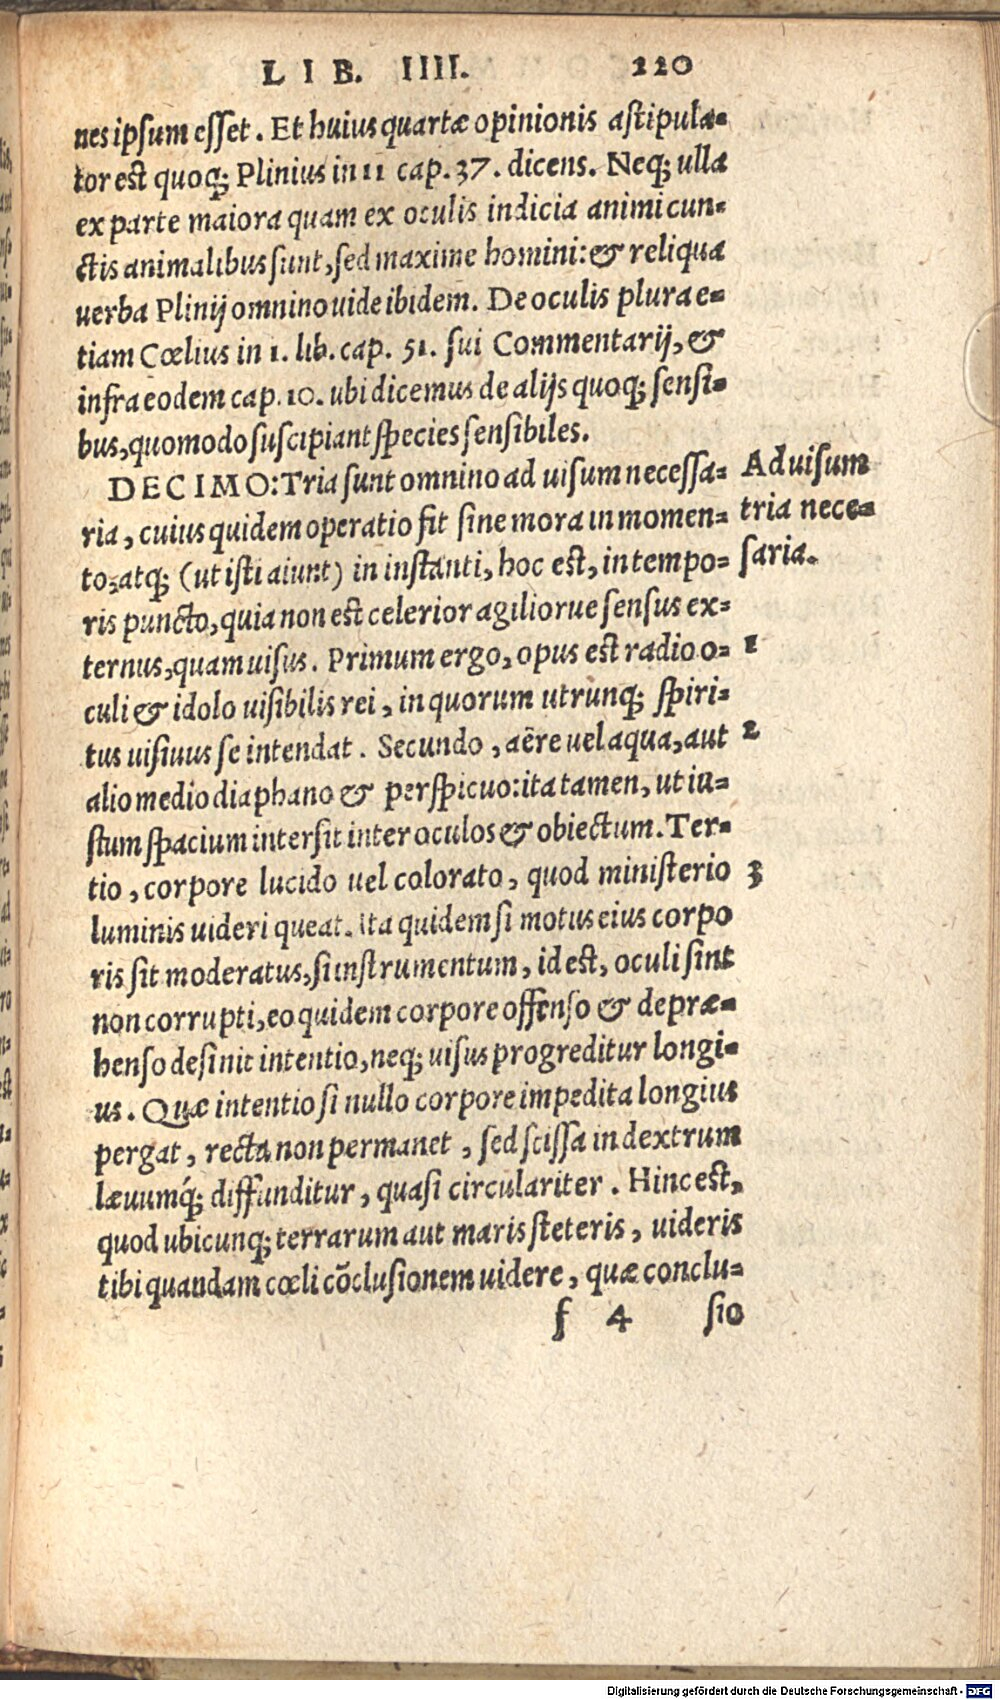 LIB. IIII. 220
nes ipsum esset. Et huius quartæ opinionis astipula-
tor est quoq; Plinius in 11 cap. 37. dicens. Neq; ulla
ex parte maiora quam ex oculis indicia animi cun-
ctis animalibus sunt, sed maxime homini: & reliqua
uerba Plinij omnino uide ibidem. De oculis plura e-
tiam Cœlius in 1. lib. cap. 51. sui Commentarij, &
infra eodem cap. 10. ubi dicemus de alijs quoq; sensi-
bus, quomodo suscipiant species sensibiles.
DECIMO: Tria sunt omnino ad uisum necessa-
ria, cuius quidem operatio fit sine mora in momen-
to, atq; (ut isti aiunt) in instanti, hoc est, in tempo-
ris puncto, quia non est celerior agiliorue sensus ex-
ternus, quam uisus. Primum ergo, opus est radio o-
culi & idolo uisibilis rei, in quorum utrunq; spiri-
tus uisiuus se intendat. Secundo, aëre uel aqua, aut
alio medio diaphano & perspicuo: ita tamen, ut iu-
stum spacium intersit inter oculos & obiectum. Ter-
tio, corpore lucido uel colorato, quod ministerio
luminis uideri queat. Ita quidem si motus eius corpo
ris sit moderatus, si instrumentum, id est, oculi sint
non corrupti, eo quidem corpore offenso & depræ-
henso desinit intentio, neq; uisus progreditur longi-
us. Quæ intentio si nullo corpore impedita longius
pergat, recta non permanet, sed scissa in dextrum
læuumq́; diffunditur, quasi circulariter. Hinc est,
quod ubicunq; terrarum aut maris steteris, uideris
tibi quandam cœli cōclusionem uidere, quæ conclu-
f 4 sio
Ad uisum
tria neces-
saria.
1
2
3
Digitalisierung gefördert durch die Deutsche Forschungsgemeinschaft - DFG